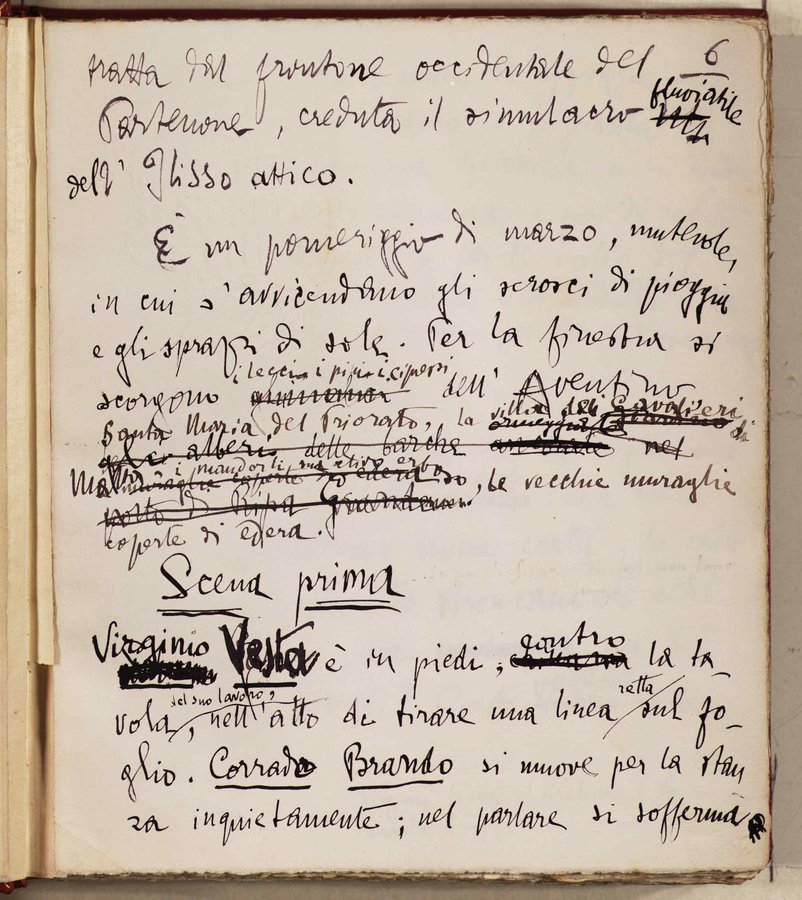 6
tratta dal frontone occidentale del
Partenone, creduta il simulacro fluviatile
dell' Ilisso attico.
È un pomeriggio di marzo, mutevole,
in cui s'avvicendano gli scrosci di pioggia
e gli sprazzi di sole. Per la finestra si
i lecci i pini i cipressi
scorgono dell' Aventino
Santa Maria del Priorato, la villa dei Cavalieri di
alberi delle barche nel
i mandorli
Malta, le vecchie muraglie
porto di Ripa Grande
coperte di edera.
Scena prima
Virginio Vesta è in piedi, contro la ta-
del suo lavoro, retta
vola, nell'atto di tirare una linea sul fo-
glio. Corrado Brando si muove per la stan
za inquietamente; nel parlare si sofferma